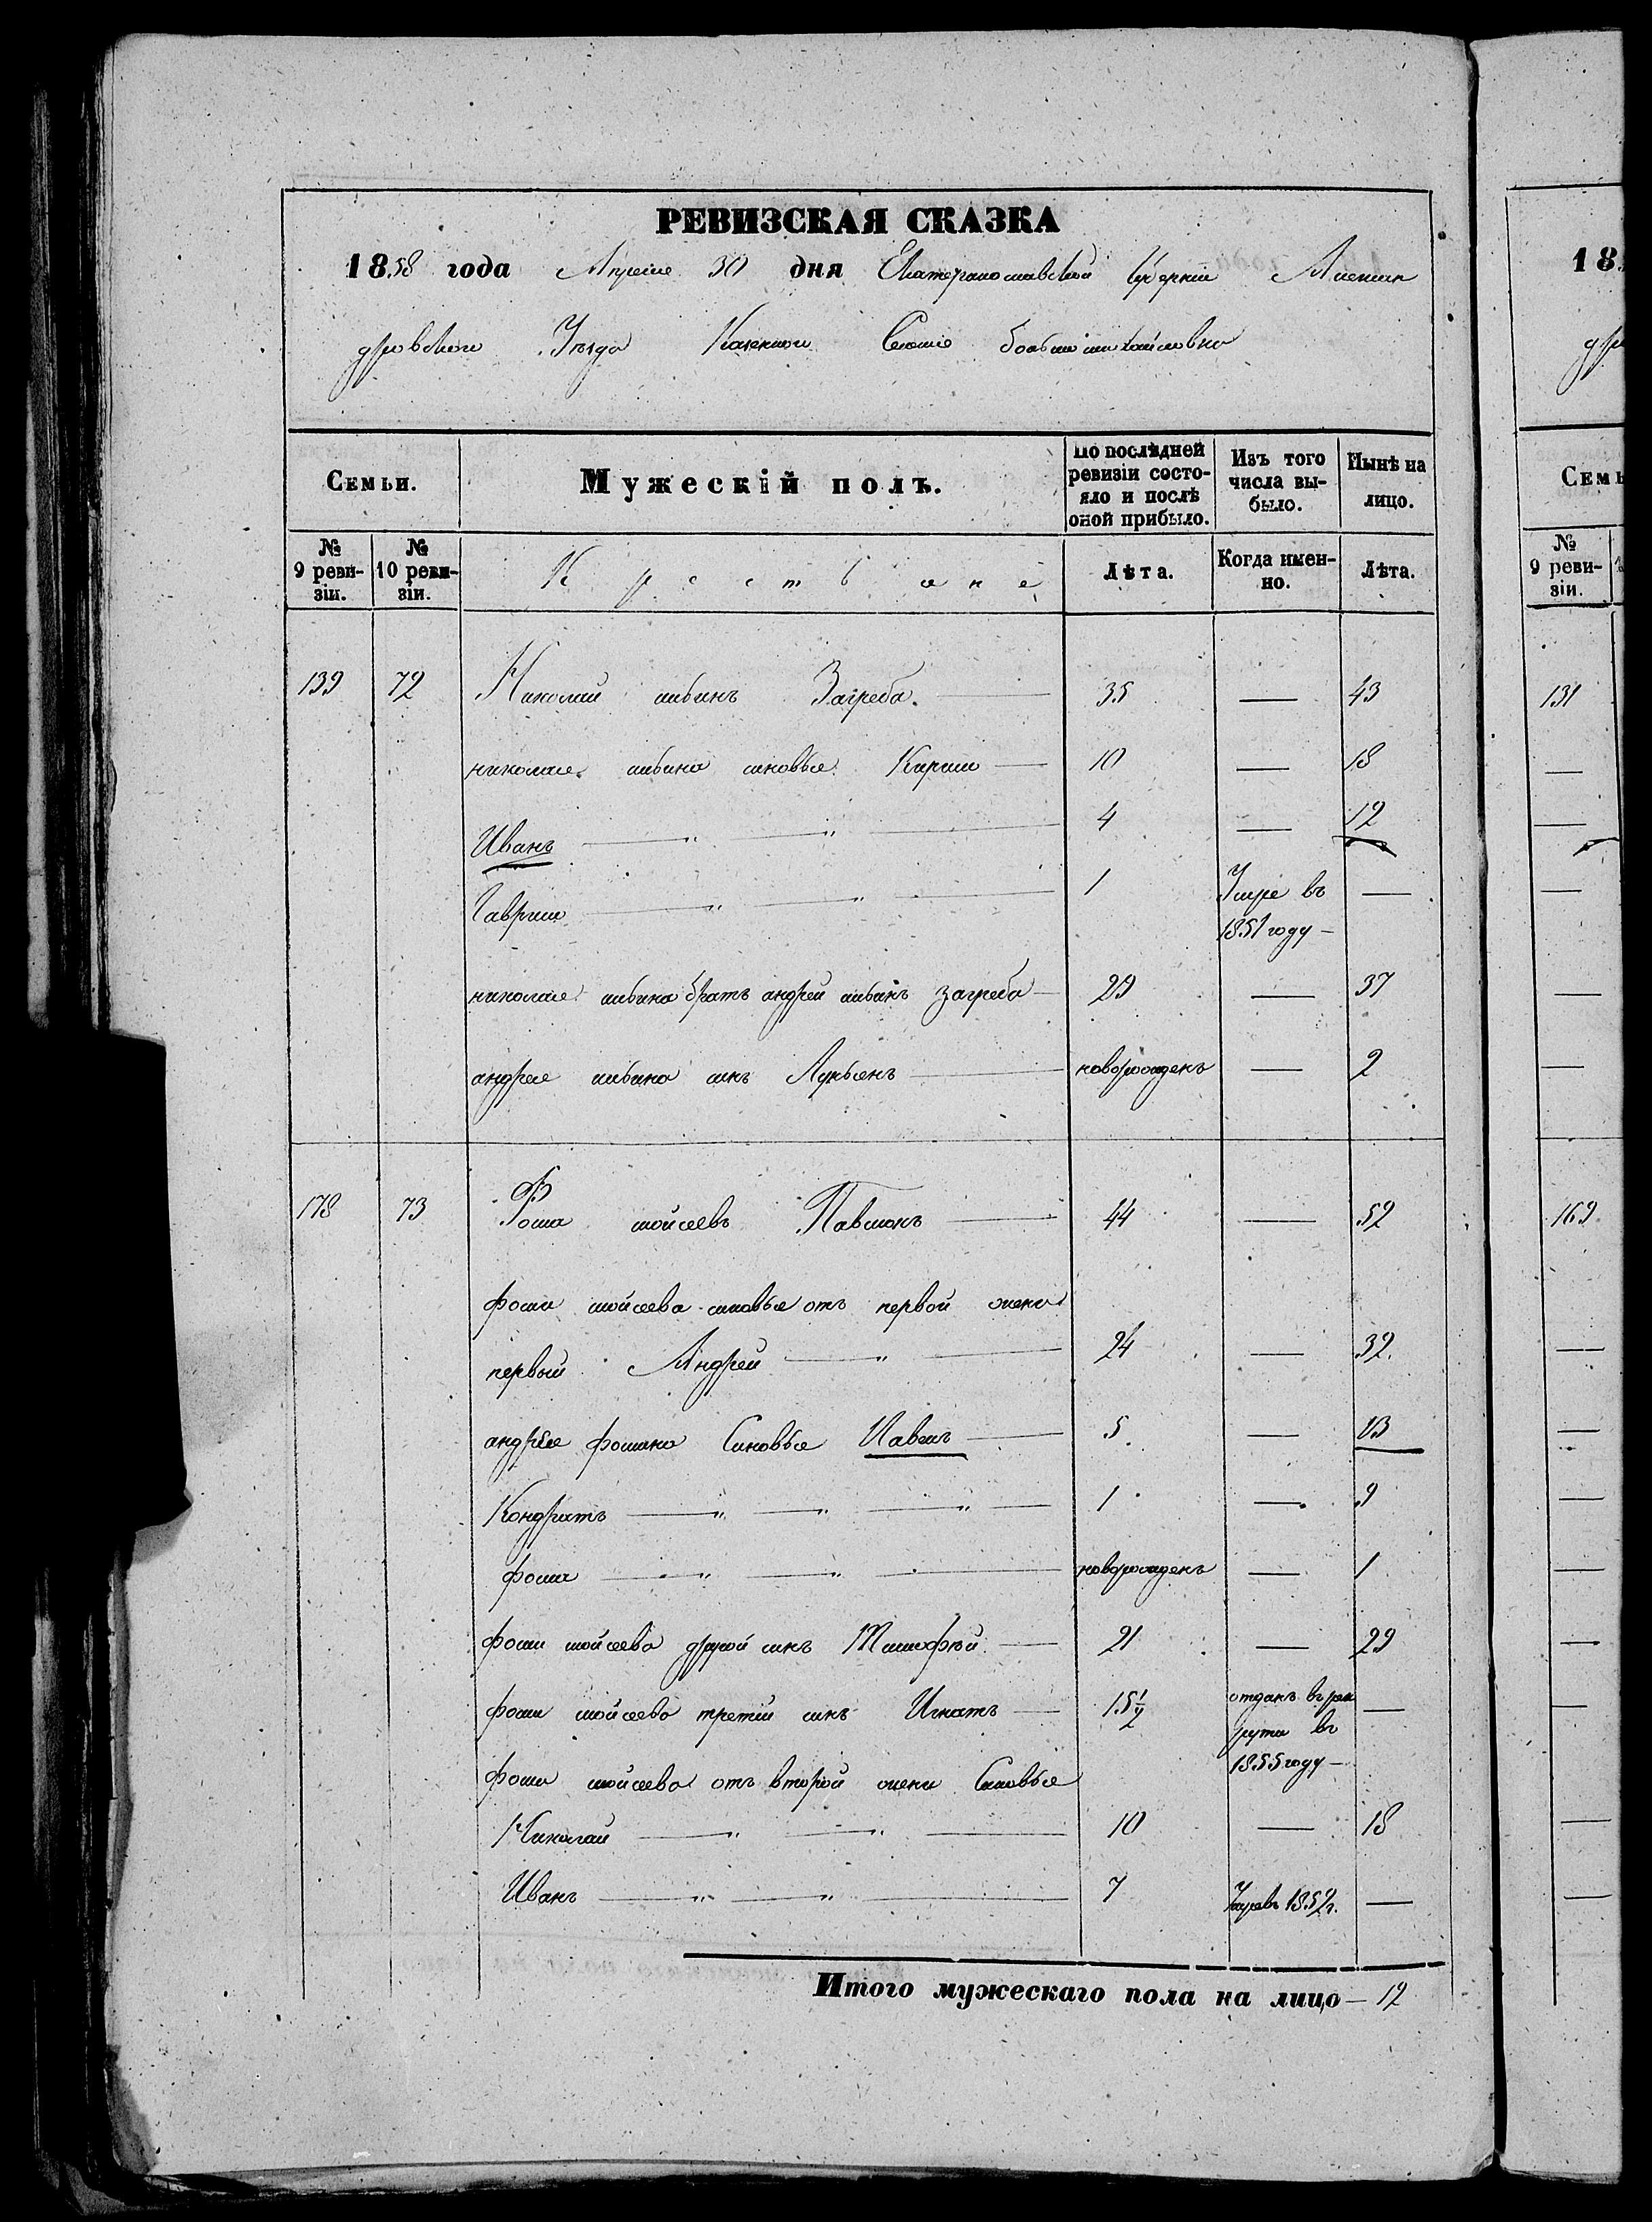 РЕВИЗСКАЯ СКАЗКА
1858 года Апреля 30 дня Екатеринославской Губернии Александ
дровского Уезда Казенного Селение большомихайловка
Семьи.
Мужескій полъ.
По послѣдней ревизіи состояло и послѣ оной прибыло.
Изъ того числа выбыло.
Нынѣ на лицо.
№ 9 ревизіи.
№ 10 ревизіи.
Крестьяне
Лѣта.
Когда именно.
Лѣта.
139 72 Николай Загреба. — 35 — 43
николая синовья Кирило — 10 — 18
Иванъ — „ — „ — 4 — 12
Гаврило — „ — „ — 1 Умре въ —
1851 году —
николая братъ андрей загреба — 29 — 37
андрея синъ Лукьенъ — новорожденъ — 2
178 73 Фома мойсеевъ Павлюкъ — 44 — 52
фоми мойсеева синовья отъ первой жени
первый Андрей — „ — 24 — 32.
андрея фомина Синовья Павелъ — 5. — 13
Кондратъ — „ — „ — „ — 1 — 9
фома — „ — „ — новорожденъ — 1
фоми мойсеева другой синъ Тимофѣй — 21 — 29
фоми мойсеева третій синъ Игнатъ — 15 1/2 отданъ въ рек —
рути въ
1855 году —
фоми мойсеева отъ второй жени Синовья
Николай — „ — „ — 10 — 18
Иванъ — „ — „ — 7 Умре въ 1852 г. —
Итого мужескаго пола на лицо — 12
18
др
Семь
№ 9 ревизіи.
131
169